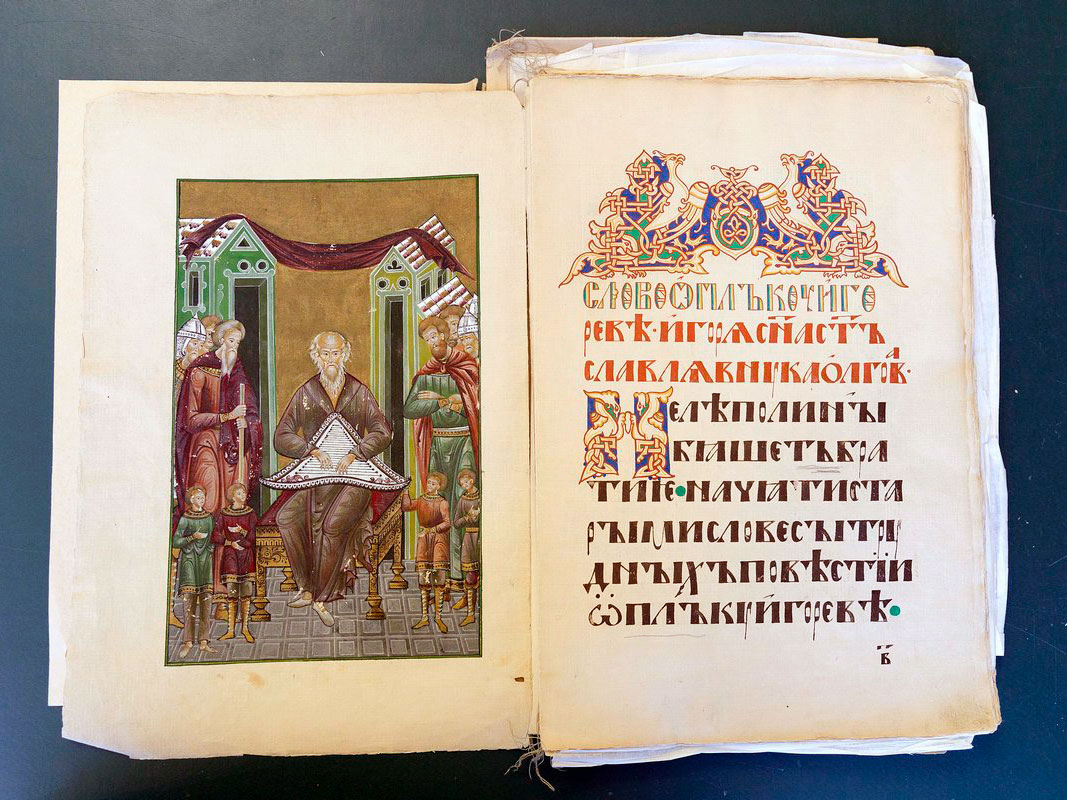 СЛОВОѠПЛЪКОУИГО
РЕВѢ·ИГОРѦСН҃АСТ҃Ъ
СЛАВЛѦВНꙊКАОЛГОВⷶ·
НЕЛѢПОЛИНꙐ
БꙖШЕТЪБРА
ТИѤ•НАЧꙖТИСТА
РꙐМИСЛОВЕСꙐТРꙊ
ДНꙐХЪПОВѢСТІИ
ѾПЛЪКꙊИГОРЕВѢ•
В҃